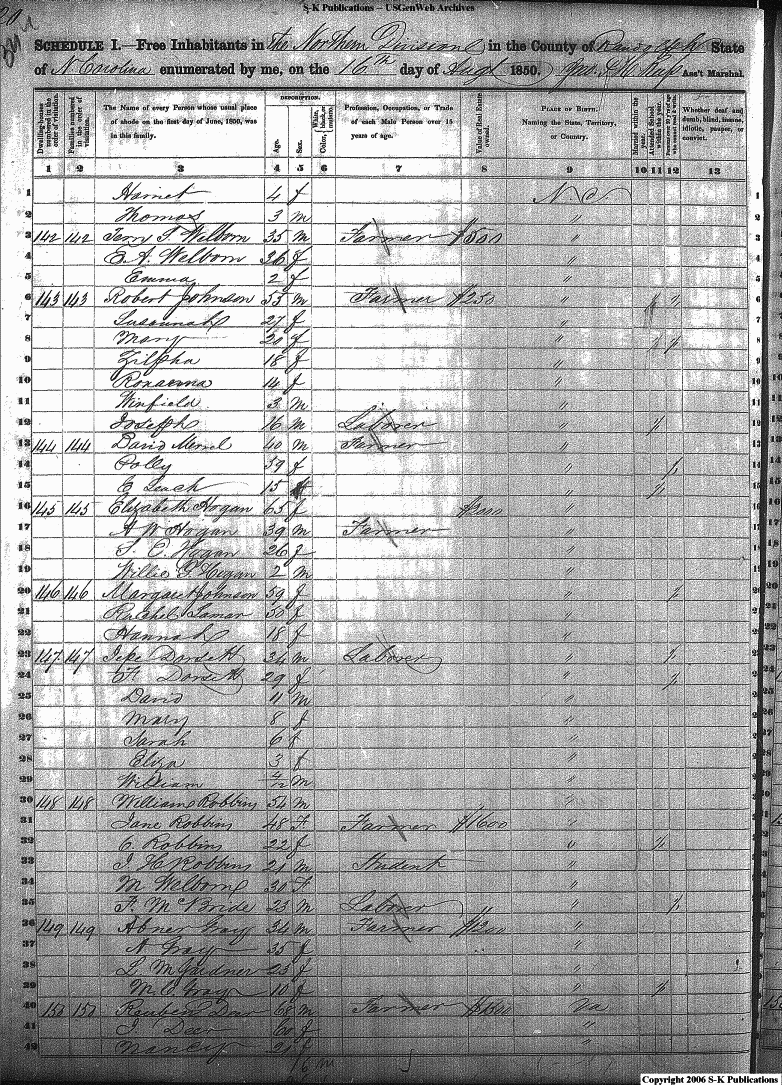 S-K Publications – USGenWeb Archives
SCHEDULE I.—Free Inhabitants in The Northern Division in the County of Randolph State
of N Carolina enumerated by me, on the 16th day of Augt 1850. Ass't Marshal.
Dwelling-houses numbered in the order of visitation. Families numbered in the order of visitation. The Name of every Person whose usual place of abode on the first day of June, 1850, was in this family. DESCRIPTION. Age. Sex. Color, White, black, or mulatto. Profession, Occupation, or Trade of each Male Person over 15 years of age. Value of Real Estate owned. PLACE OF BIRTH. Naming the State, Territory, or Country. Married within the year. Attended School within the year. Whether deaf and dumb, blind, insane, idiotic, pauper, or convict.
1 2 3 4 5 6 7 8 9 10 11 12 13
1 Harriet 4 f N C
2 Thomas 3 m "
3 142 142 Terry F. Welborn 35 m Farmer $500 "
4 E. A. Welborn 36 f "
5 Emma 2 f "
6 143 143 Robert Johnson 53 m Farmer $250 "
7 Susannah 27 f "
8 Mary 20 f "
9 Zilpha 18 f "
10 Roxanna 14 f "
11 Winfield 3 m "
12 Joseph 16 m Laborer "
13 144 144 David Merrel 40 m Farmer "
14 Polly 59 f "
15 C Leach 15 "
16 145 145 Elizabeth Hogan 65 f $2000 "
17 A W Hogan 39 m Farmer "
18 S. C. Hogan 26 f "
19 Willie G. Hogan 2 m "
20 146 146 Margaret Johnson 59 f "
21 Rachel Lamar 50 f "
22 Hannah 18 f "
23 147 147 Dorsett 34 m Laborer "
24 F. Dorsett 29 f "
25 David 11 m "
26 Mary 8 f "
27 Sarah 6 f "
28 Eliza 3 f "
29 William 4/12 m "
30 148 148 Williams Robbins 54 m "
31 Jane Robbins 48 F Farmer $1600 "
32 C. Robbins 22 f "
33 J H Robbins 21 m Student "
34 M Welborn 30 F "
35 F. McBride 23 m Laborer "
36 149 149 Abner Gray 34 m Farmer $1200 "
37 N Gray 35 f "
38 L. M Gardner 23 f "
39 M. C. Gray 10 f "
40 150 150 Reuben Deer 68 m Farmer Va
41 J Deer 60 f "
42 Nancy 21 f "
16 m
Copyright 2006 S-K Publications